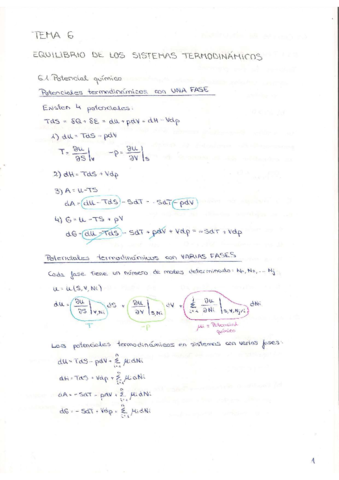 TEMA 6
EQUILIBRIO DE LOS SISTEMAS TERMODINÁMICOS
6.1 Potencial químico
Potenciales termodinámicos con UNA FASE
Existen 4 potenciales:
TdS = δQ + δE = du + pdV = dH - Vdp
1) du = TdS - pdV
T = ∂u/∂S|V -p = ∂u/∂V|S
2) dH = TdS + Vdp
3) A = u - TS
dA = du - TdS - SdT = -SdT - pdV
4) G = u - TS + pV
dG = du - TdS - SdT + pdV + Vdp = -SdT + Vdp
Potenciales termodinámicos con VARIAS FASES
Cada fase tiene un número de moles determinado: N₁, N₂, ... Nj.
u = u(S, V, Ni)
du = ∂u/∂S|V,Ni dS + ∂u/∂V|S,Ni dV + Σ ∂u/∂Ni|S,V,Nj dNi
T -p μi = Potencial químico
Los potenciales termodinámicos en sistemas con varias fases:
du = TdS - pdV + Σ μi dNi
dH = TdS + Vdp + Σ μi dNi
dA = -SdT - pdV + Σ μi dNi
dG = -SdT + Vdp + Σ μi dNi
1